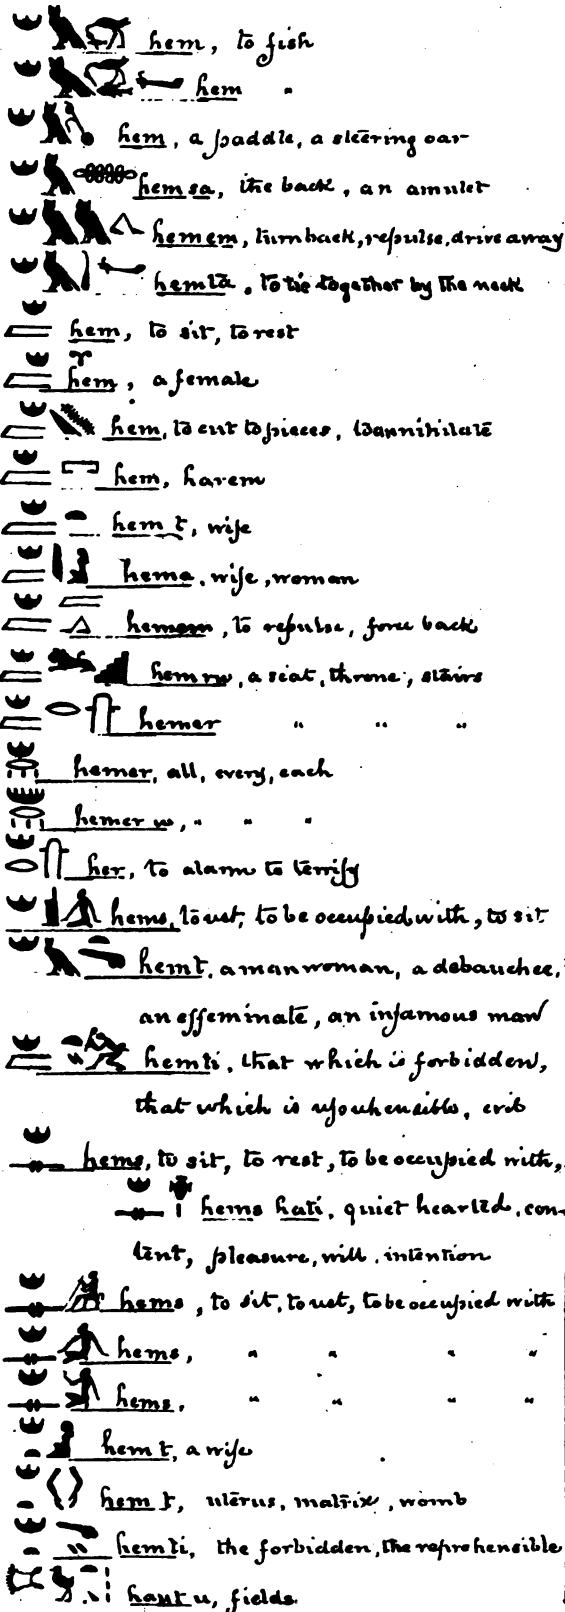 hem, to fish
hem "
hem, a paddle, a steering oar
hem sa, the back, an amulet
hemem, turn back, repulse, drive away
hemtā, to tie together by the neck
hem, to sit, to rest
hem, a female
hem, to cut to pieces, to annihilate
hem, harem
hem t, wife
hema, wife, woman
hemem, to repulse, force back
hem rw, a seat, throne, stairs
hemer " " "
hemer, all, every, each
hemer w, " " "
her, to alarm to terrify
hems, to rest, to be occupied with, to sit
hemt, a man woman, a debauchee,
an effeminate, an infamous man
hemti, that which is forbidden,
that which is reprehensible, evil
hems, to sit, to rest, to be occupied with,
hems hati, quiet hearted, con-
tent, pleasure, will, intention
hems, to sit, to rest, to be occupied with
hems, " " " "
hems, " " " "
hem t, a wife
hem t, uterus, matrix, womb
hemti, the forbidden, the reprehensible
hant u, fields